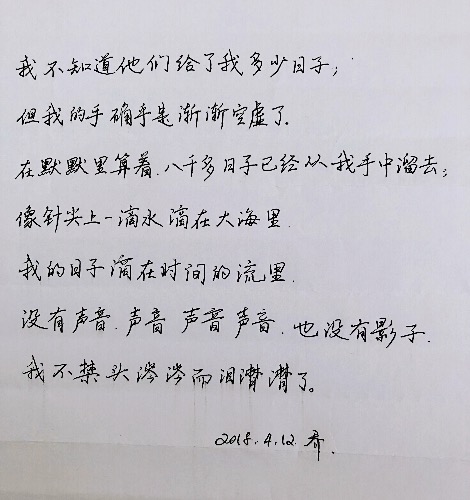 我不知道他们给了我多少日子；
但我的手确乎是渐渐空虚了。
在默默里算着、八千多日子已经从我手中溜去；
像针尖上一滴水滴在大海里.
我的日子滴在时间的流里.
没有声音、声音 声音 声音、也没有影子.
我不禁头涔涔而泪潸潸了。
2018.4.12.